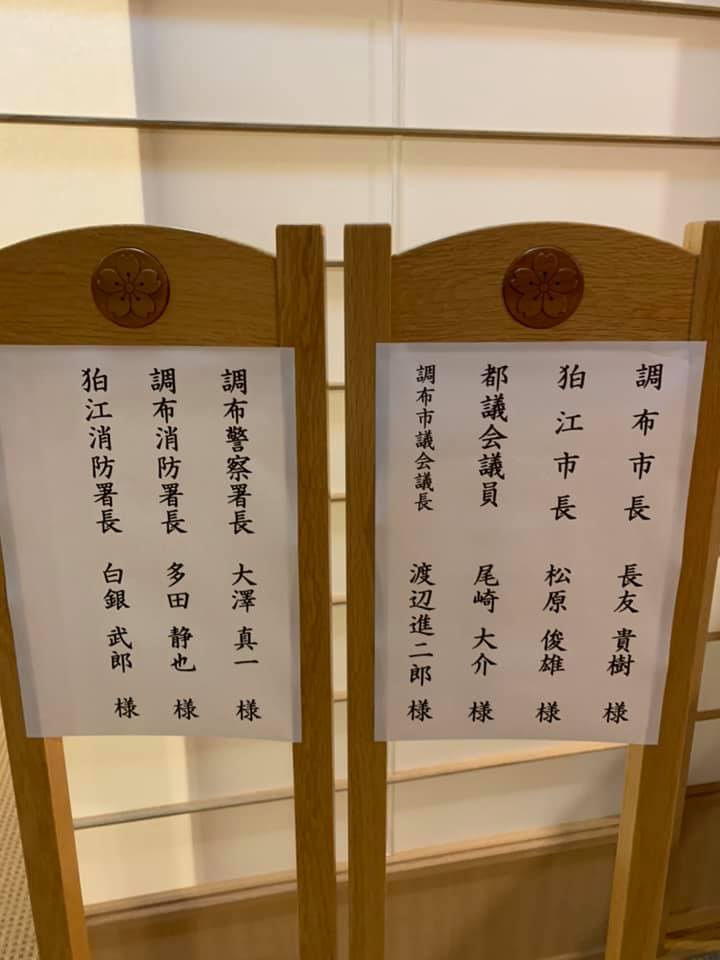 調布市長 長友 貴樹 様
狛江市長 松原 俊雄 様
都議会議員 尾崎 大介 様
調布市議会議長 渡辺進二郎 様
調布警察署長 大澤 真一 様
調布消防署長 多田 静也 様
狛江消防署長 白銀 武郎 様